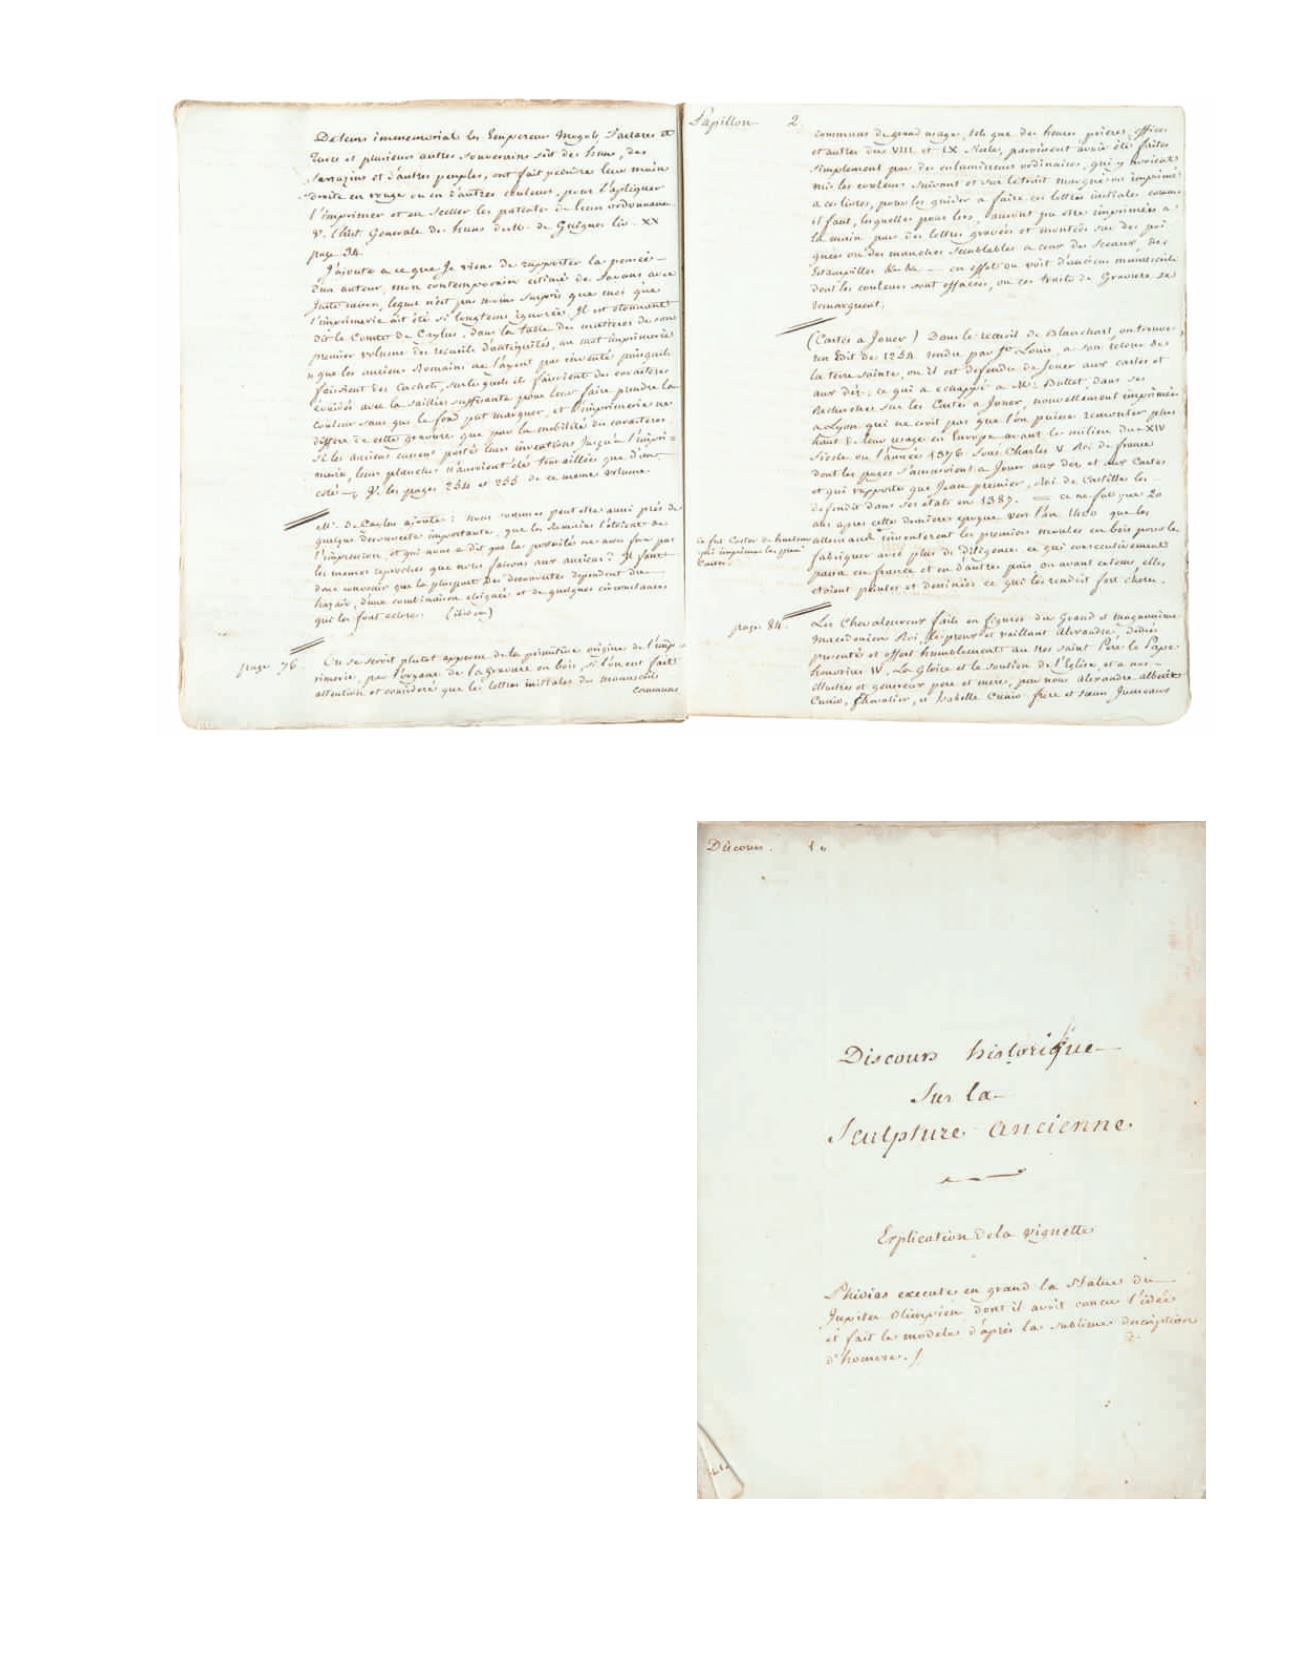 De tems immemorial les Empereurs Mogols, Tartares et
Turcs et plusieurs autres souverains soit des huns, des
Sarrazins et d'autres peuples, ont fait peindre leur main
droite en rouge ou en d'autres couleurs, pour l'apliquer
l'imprimer et en sceller les patentes de leurs ordonnances
V. l'hist. Generale des huns de Mr. de Guignes liv. XX
page 34.
J'ajoute a ce que Je viens de rapporter la pensée
d'un auteur, mon contemporain estimé des Savans avec
Juste raison, lequel n'est pas moins surpris que moi que
l'imprimerie ait été si longtems ignorée. Il est etonnant
dit le Comte de Caylus, dans la table des matieres de son
premier volume des recueils d'antiquités, au mot imprimerie
que les anciens Romains ne l'ayent pas inventé puisqu'ils
faisoient des Cachets, sur lesquels ils faisoient des caracteres
évuidés avec la saillie suffisante pour leur faire prendre la
couleur sans que le fond put marquer, et l'imprimerie ne
differe de cette gravure que par la mobilité des caracteres
si les anciens eussent portés leurs inventions Jusqu'a l'impri-
merie, leurs planches n'auroient été travaillées que d'un
coté V. les pages 254 et 255 de ce meme volume.
Mr. de Caylus ajoute: nous sommes peut etre aussi près de
quelque decouverte importante, que les Romains l'étoient de
l'impression, et qui nous a dit que la posterité ne nous fera pas
les memes reproches que nous faisons aux anciens? Il faut
donc convenir que la pluspart des decouvertes dependent du
hazard, d'une combinaison eloignée et de quelques circonstances
qui les font eclore. (ibidem)
page 76. On se seroit plutot apperçu de la primitive origine de l'imp-
rimerie, par l'organe de la gravure en bois, si l'on eut fait
attention et consideré que les lettres initiales des manuscrits
communs
Papillon 2
communs de grand usage, tels que des heures, prieres, offices
et autres du VIII et IX Siecle, paroissent avoir été faites
simplement par des enlumineurs ordinaires, qui y avoient
mis les couleurs suivant et sur le trait marqué ou imprimé
a ces livres, pour les guider a faire ces lettres initiales comme
il faut, lesquelles pour lors auront pu etre imprimées a
la main par des lettres gravées et montées sur des poi
gnées ou des manches semblables a ceux des Sceaux, des
Estampilles &c &c en effet on voit d'anciens manuscrits
dont les couleurs sont effacées, ou ces traits de Gravure se
remarquent.
(Cartes a Jouer) Dans le recueil de Blanchart, on trouve
un Edit de 1254 rendu par St Louis, a son retour de
la terre sainte, ou il est defendu de Jouer aux cartes et
aux dés, ce qui a echappé a Mr. Bullet, dans ses
Recherches sur les Cartes a Jouer, nouvellement imprimées
a Lyon qui ne croit pas que l'on puisse remonter plus
haut leur usage en Europe avant le milieu du XIV
Siecle ou l'année 1376 sous Charles V Roi de france
dont les pages s'amusoient a Jouer aux dez et aux Cartes
et qui rapporte que Jean premier, Roi de Castille les
defendit dans ses etats en 1387. ce ne fut que 20
ans apres cette derniere epoque vers l'an 1400 que les
allemands inventerent les premiers moules en bois pour les
fabriquer avec plus de diligence, ce qui consecutivement
passa en france et en d'autres païs ou avant cetems, elles
etoient peintes et dessinées ce qui les rendoit fort cheres.
ce fut Coster de harlem
qui imprima les
Cartes.
page 84. Les Chevaleureux faits en figures du Grand et magnanime
Macedonien Roi, le preux et vaillant Alexandre, dediés
presentés et offert humblement au tres saint Pere le Pape
honorius IV, la Gloire et le soutien de l'Eglise, et a nos
illustres et genereux pere et mere, par nous Alexandre alberic
Cunio, Chevalier, et Isabelle Cunio frere et soeur Jumeaux
Discours. 1.
Discours historique
Sur la
Sculpture ancienne
Explication de la vignette
Phidias execute en grand la Statue du
Jupiter Olimpien dont il avoit concu l'idée
et fait le modele d'après la sublime description
d'homere.